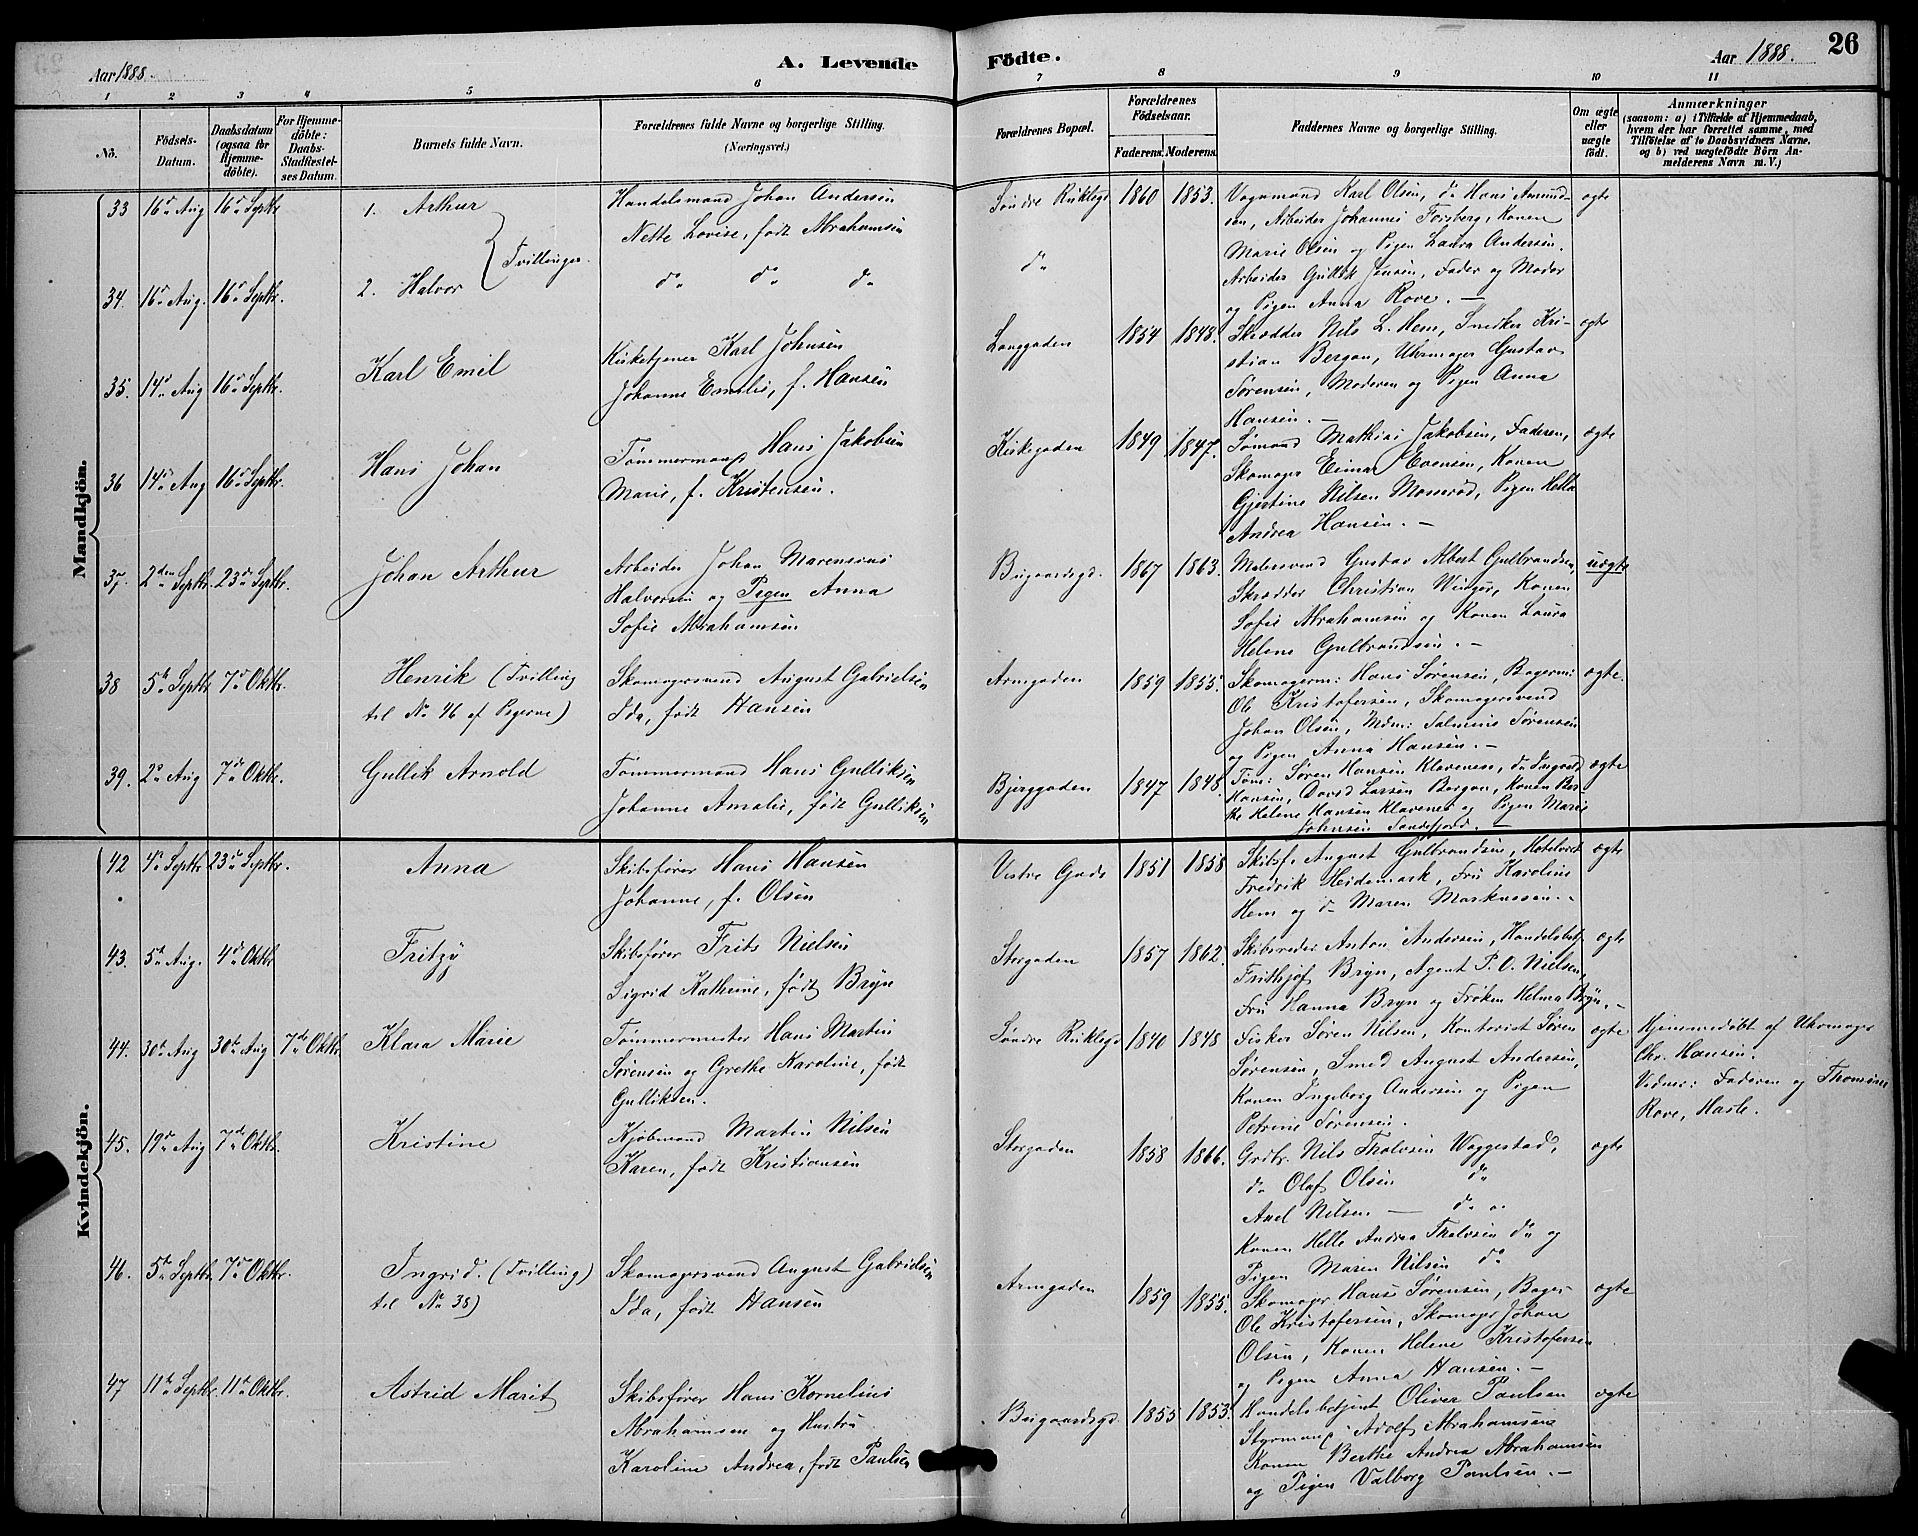 Aar 1888.
A. Levende Födte.
Aar 1888.
26
1 2 3 4 5 6 7 8 9 10 11
No.
Födsels-Datum.
Daabsdatum (ogsaa for Hjemme-döbte).
For Hjemme-döbte: Daabs-Stadfæstel-ses Datum.
Barnets fulde Navn.
Forældrenes fulde Navne og borgerlige Stilling.
(Næringsvei.)
Forældrenes Bopæl.
Forældrenes Födselsaar.
Faderens. Moderens.
Faddernes Navne og borgerlige Stilling.
Om ægte eller uægte födt.
Anmærkninger
(saasom: a) i Tilfælde af Hjemmedaab, hvem der har forrettet samme, med Tilföielse af to Daabsvidners Navne, og b) ved uægtefödte Börn Anmelderens Navn m. V.)
Mandkjön.
33 16de Aug 16de Septbr 1. Arthur Handelsmand Johan Andersen Søndre Rukklegd 1860 1853. Vognmand Karl Olsen, do Hans Amund- ægte
Nette Lovise, født Abrahamsen
sen, Arbeider Johannes Forsberg, Konen
Tvillinger.
Marie Olsen og Pigen Laura Andersen.
34. 16de Aug. 16de Septbr. 2. Halvor do do do do Arbeider Gullik Jensen, Fader og Moder
og Pigen Anna Rove. —
35. 14de Aug 16de Septbr. Karl Emil Kirketjener Karl Johnsen Langgaden 1854 1848. Skrædder Nils L. Hem, Snedker Kri- ægte
Johanne Emilie, f. Hansen
stian Bergan, Uhrmager Gustav
Sørensen, Moderen og Pigen Anna
Hansen. —
36 14de Aug 16de Septbr. Hans Johan Tømmermand Hans Jakobsen Kirkegaden 1849 1847. Sømand Mathias Jakobsen, Faderen, ægte
Marie, f. Kristensen.
Skomager Einar Evensen, Konen
Gjertine Nilsen Momrød, Pigen Helle
Andrea Hansen. —
37. 2den Septbr. 23de Septbr. Johan Arthur Arbeider Johan Marensius Bugaardsgd. 1867 1863. Malersvend Gustav Albert Gulbrandsen, uægte
Halvorsen og Pigen Anna
Skrædder Christian Winger, Konen
Sofie Abrahamsen
Sofie Abrahamsen og Konen Laura
Helene Gulbrandsen. —
38 5te Septbr 7de Oktbr. Henrik (Tvilling Skomagersvend August Gabrielsen Armgaden 1859 1855. Skomagerm: Hans Sørensen, Bagerm: ægte.
til No 46 af Pigerne) Ida, født Hansen
Ole Kristofersen, Skomagersvend
Johan Olsen, Mdm: Salmine Sørensen
og Pigen Anna Hansen. —
39. 2de Aug 7de Oktbr. Gullik Arnold Tømmermand Hans Gulliksen Bjerggaden 1847 1848. Tøm: Søren Hansen Klavenes, do Ingvald ægte
Johanne Amalie, født Gulliksen
Hansen, David Larsen Bergan, Konen Ber-
the Helene Hansen Klavenes og Pigen Marie
Johnsen Sandefjord. —
Kvindekjön.
42 4de Septbr 23de Septbr. Anna Skibsfører Hans Hansen Vestre Gade 1851 1858 Skibsf. August Gulbrandsen, Hotelvert ægte
Johanne, f. Olsen
Fredrik Heidemark, Fru Karoline
Hem og do Maren Markussen. -
43. 5te Aug. 4de Oktbr Fritzy Skibsfører Frits Nielsen Storgaden 1857 1862. Skibsreder Anton Andersen, Handelsbetj. ægte
Sigrid Kathrine, født Bryn
Frithjof Bryn, Agent P. O. Nielsen,
Fru Hanna Bryn og Frøken Helma Bryn. —
44. 30te Aug 30te Aug 7de Oktbr. Klara Marie Tømmermester Hans Martin Søndre Rukklegd 1840 1848 Fisker Søren Nilsen, Kontorist Søren ægte Hjemmedøbt af Uhrmager
Sørensen og Grethe Karoline, født
Sørensen, Smed August Andersen,
Chr. Hansen.
Gulliksen.
Konen Ingeborg Andersen og Pigen
Vidner: Faderen og Thomine
Petrine Sørensen.
Rove, Hasle.
45. 19de Aug 7de Oktbr. Kristine Kjøbmand Martin Nilsen Storgaden 1858 1866. Grdbr. Nils Tholvsen Waggestad, ægte
Karen, født Kristiansen
do Olaf Olsen do
Axel Nilsen — do
Konen Helle Andrea Tholvsen do og
Pigen Maren Nilsen do
46. 5te Septbr. 7de Oktbr. Ingrid. (Tvilling) Skomagersvend August Gabrielsen Armgaden 1859 1855. Skomager Hans Sørensen, Bager- ægte
til No 38) Ida, født Hansen
Ole Kristofersen, Skomager Johan
Olsen, Konen Helene Kristofersen
og Pigen Anna Hansen. —
47 11te Septbr. 11te Oktbr. Astrid Marit Skibsfører Hans Kornelius Bugaardsgd. 1855 1853. Handelsbetjent Oliver Paulsen ægte
Abrahamsen og Hustru
Styrmand Adolf Abrahamsen
Karoline Andrea, født Paulsen
Konen Berthe Andrea Abrahamsen
og Pigen Valborg Paulsen. —